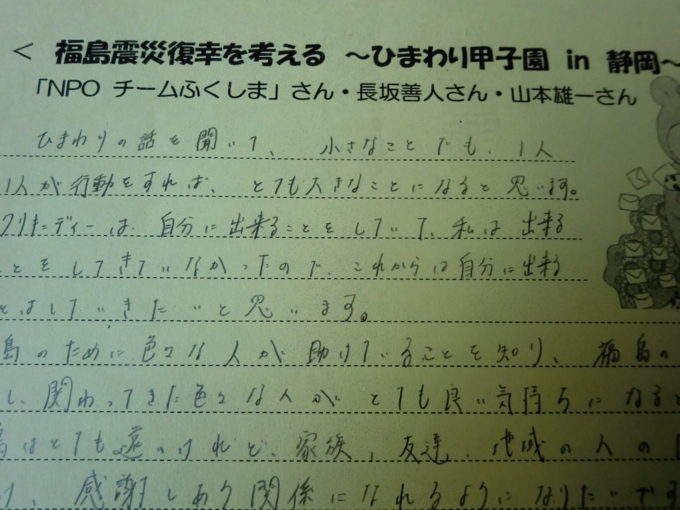 < 福島震災復幸を考える ～ひまわり甲子園 in 静岡～
「NPO チームふくしま」さん・長坂善人さん・山本雄一さん
ひまわりの話を聞いて、小さなことでも、1人
1人が行動をすれば、とても大きなことになると思います。
クリたディーは、自分に出来ることをしていて、私は出来る
ことをしてきていなかったので、これからは自分に出来る
とはしていきたいと思います。
島のために色々な人が助けていることを知り、福島の
し、関わってきた色々な人が とても良い気持ちになると
はとても遠いけれど、家族、友達、地域の人の
、感謝しあう関係になれるようになりたいです